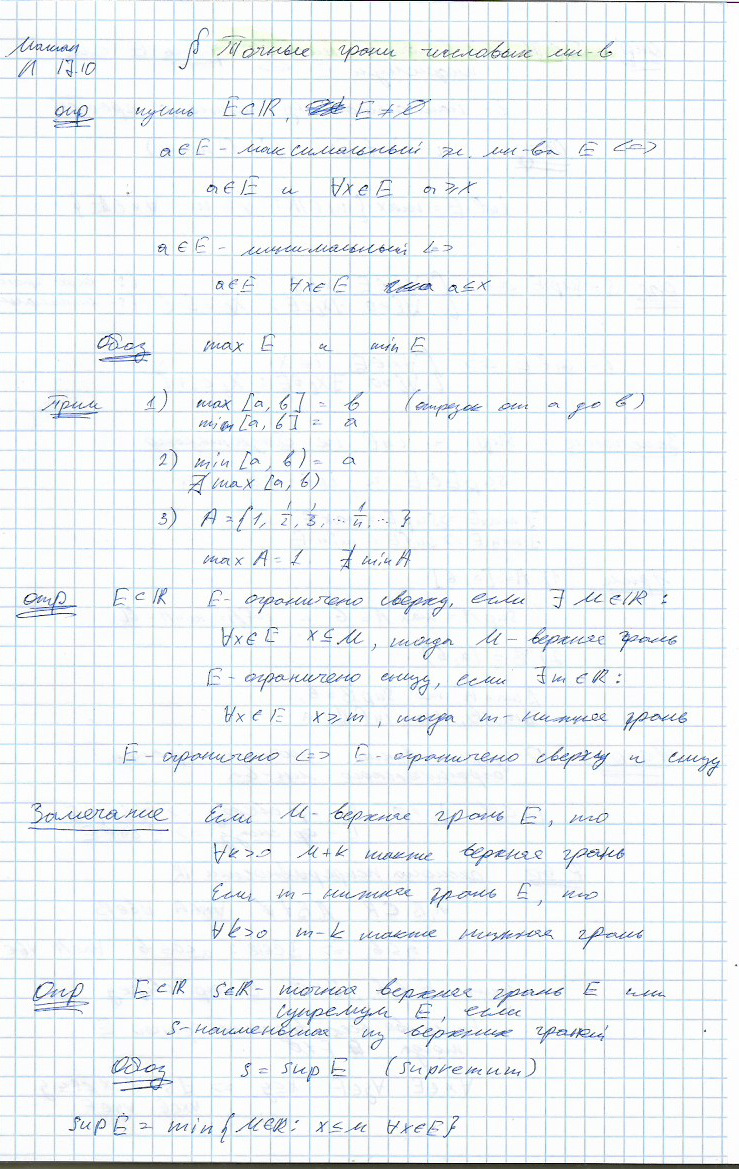 Матан
Л 17.10
§ Точные грани числовых мн-в
опр пусть E⊂ℝ, E ≠ ∅
a∈E – максимальный эл. мн-ва E <=>
a∈E и ∀x∈E a⩾x
a∈E – минимальный <=>
a∈E ∀x∈E a⩽x
Обоз max E и min E
Прим 1) max [a, b] = b (отрезок от a до b)
min [a, b] = a
2) min [a, b) = a
∄ max [a, b)
3) A = {1, 1/2, 1/3, ... 1/n, ...}
max A = 1 ∄ min A
опр E⊂ℝ E – ограничено сверху, если ∃ M∈ℝ:
∀x∈E x⩽M, тогда M – верхняя грань
E – ограничено снизу, если ∃m∈ℝ:
∀x∈E x⩾m, тогда m – нижняя грань
E – ограничено <=> E – ограничено сверху и снизу
Замечание Если M – верхняя грань E, то
∀k>0 M+k также верхняя грань
Если m – нижняя грань E, то
∀k>0 m-k также нижняя грань
Опр E⊂ℝ s∈ℝ – точная верхняя грань E или
супремум E, если
s – наименьшая из верхних граней
Обоз s = sup E (supremum)
sup E = min{M∈ℝ: x⩽M ∀x∈E}